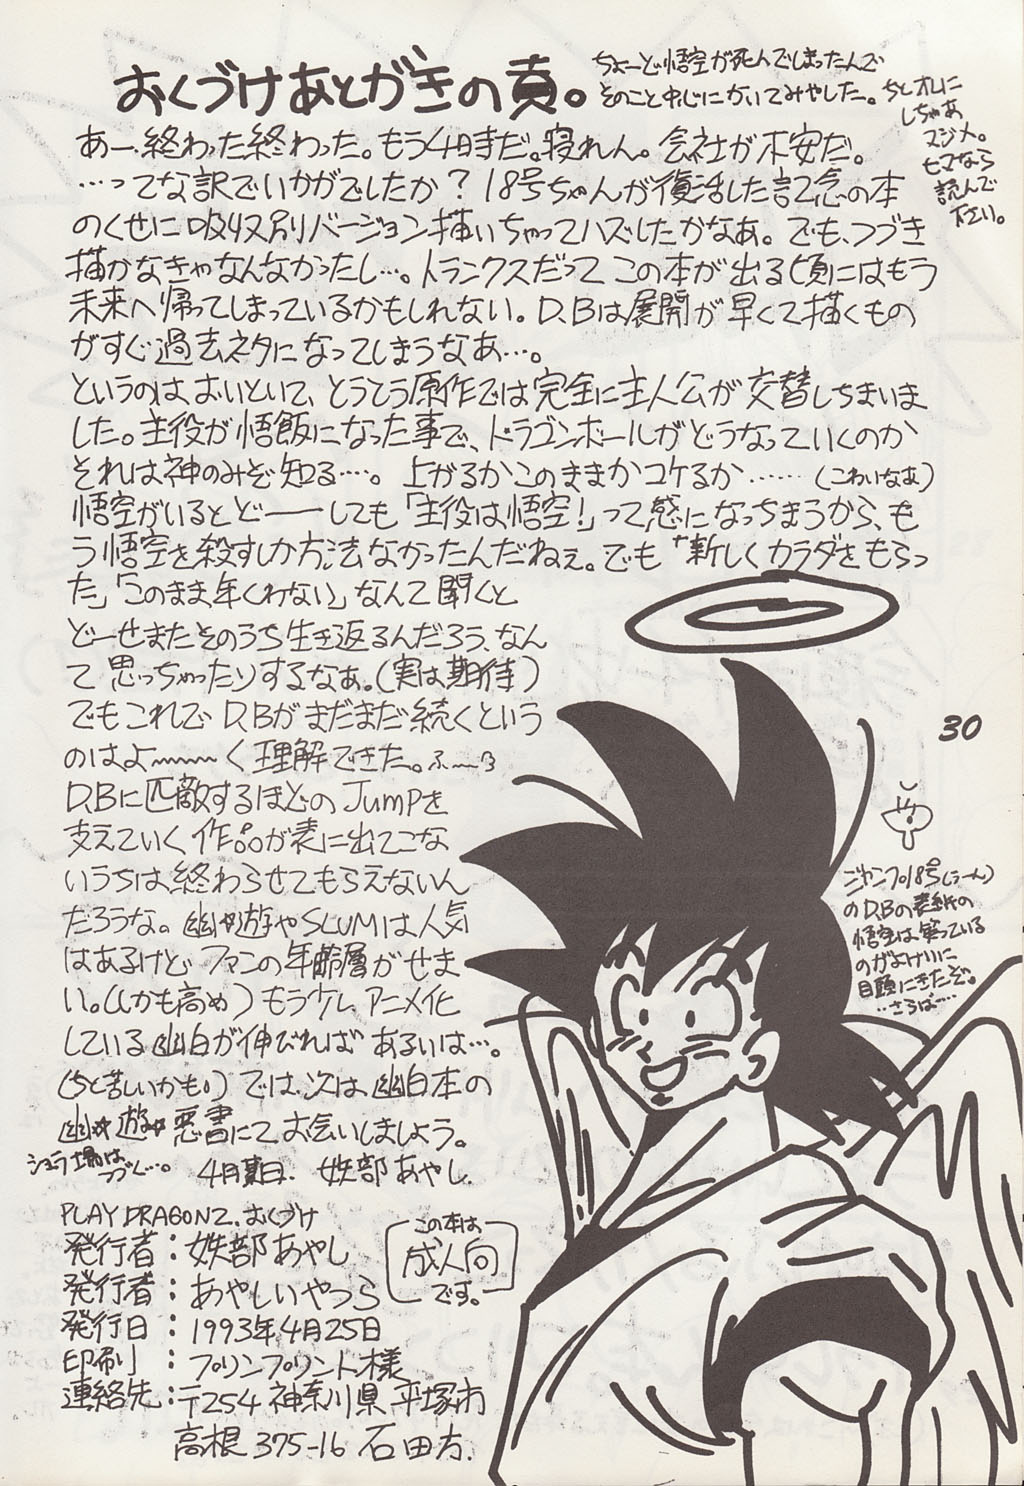 おくづけあとがきの頁。
ちょーど悟空が死んでしまったんで
そのこと中心にかいてみやした。
ちとオレに
しちゃあ
マジメ。
ヒマなら
読んで
下さい。
あー、終わった終わった。もう4時だ。寝れん。会社が不安だ。
…ってな訳でいかがでしたか？18号ちゃんが復活した記念の本
のくせに吸収別バージョン描いちゃってハズしたかなあ。でも、つづき
描かなきゃなんなかったし…。トランクスだって この本が出る頃にはもう
未来へ帰ってしまっているかもしれない。D.Bは展開が早くて描くもの
がすぐ過去ネタになってしまうなあ…。
というのはおいといて、とうとう原作では完全に主人公が交替しちまいま
した。主役が悟飯になった事で、ドラゴンボールがどうなっていくのか
それは神のみぞ知る…。上がるかこのままかコケるか……（こわいなあ）
悟空がいるとどーーしても「主役は悟空！」って感になっちまうから、も
う悟空を殺すしか方法なかったんだねぇ。でも「新しくカラダをもらっ
た」「このまま年くわない」なんて聞くと
どーせまたそのうち生き返るんだろう、なん
て思っちゃったりするなぁ。（実は期待）
でもこれでD.Bがまだまだ続くという
のはよ〜〜く理解できた。ふーっ
D.Bに匹敵するほどのJUMPを
支えていく作品が表に出てこな
いうちは終わらせてもらえないん
だろうな。幽☆遊やSLUMは人気
はあるけど ファンの年齢層がせま
い。（しかも高め）もう少し、アニメ化
している幽白が伸びれば あるいは…。
（ちと苦しいかも。）では、次は幽白本の
幽☆遊☆悪書にてお会いしましょう。
シュラ場は
つづく…。
4月 日. 妖部あやし.
30
ジャンプ18号(うーん)
のD.Bの表紙の
悟空は笑っている
のがよけいに
目頭にきたぞ。
…さらば…
PLAY DRAGON Z. おくづけ
発行者：妖部あやし
発行者：あやしいやつら
発行日：1993年4月25日
印刷：プリンプリント様
連絡先：〒254 神奈川県平塚市
高根375-16 石田方.
この本は
成人向
です。